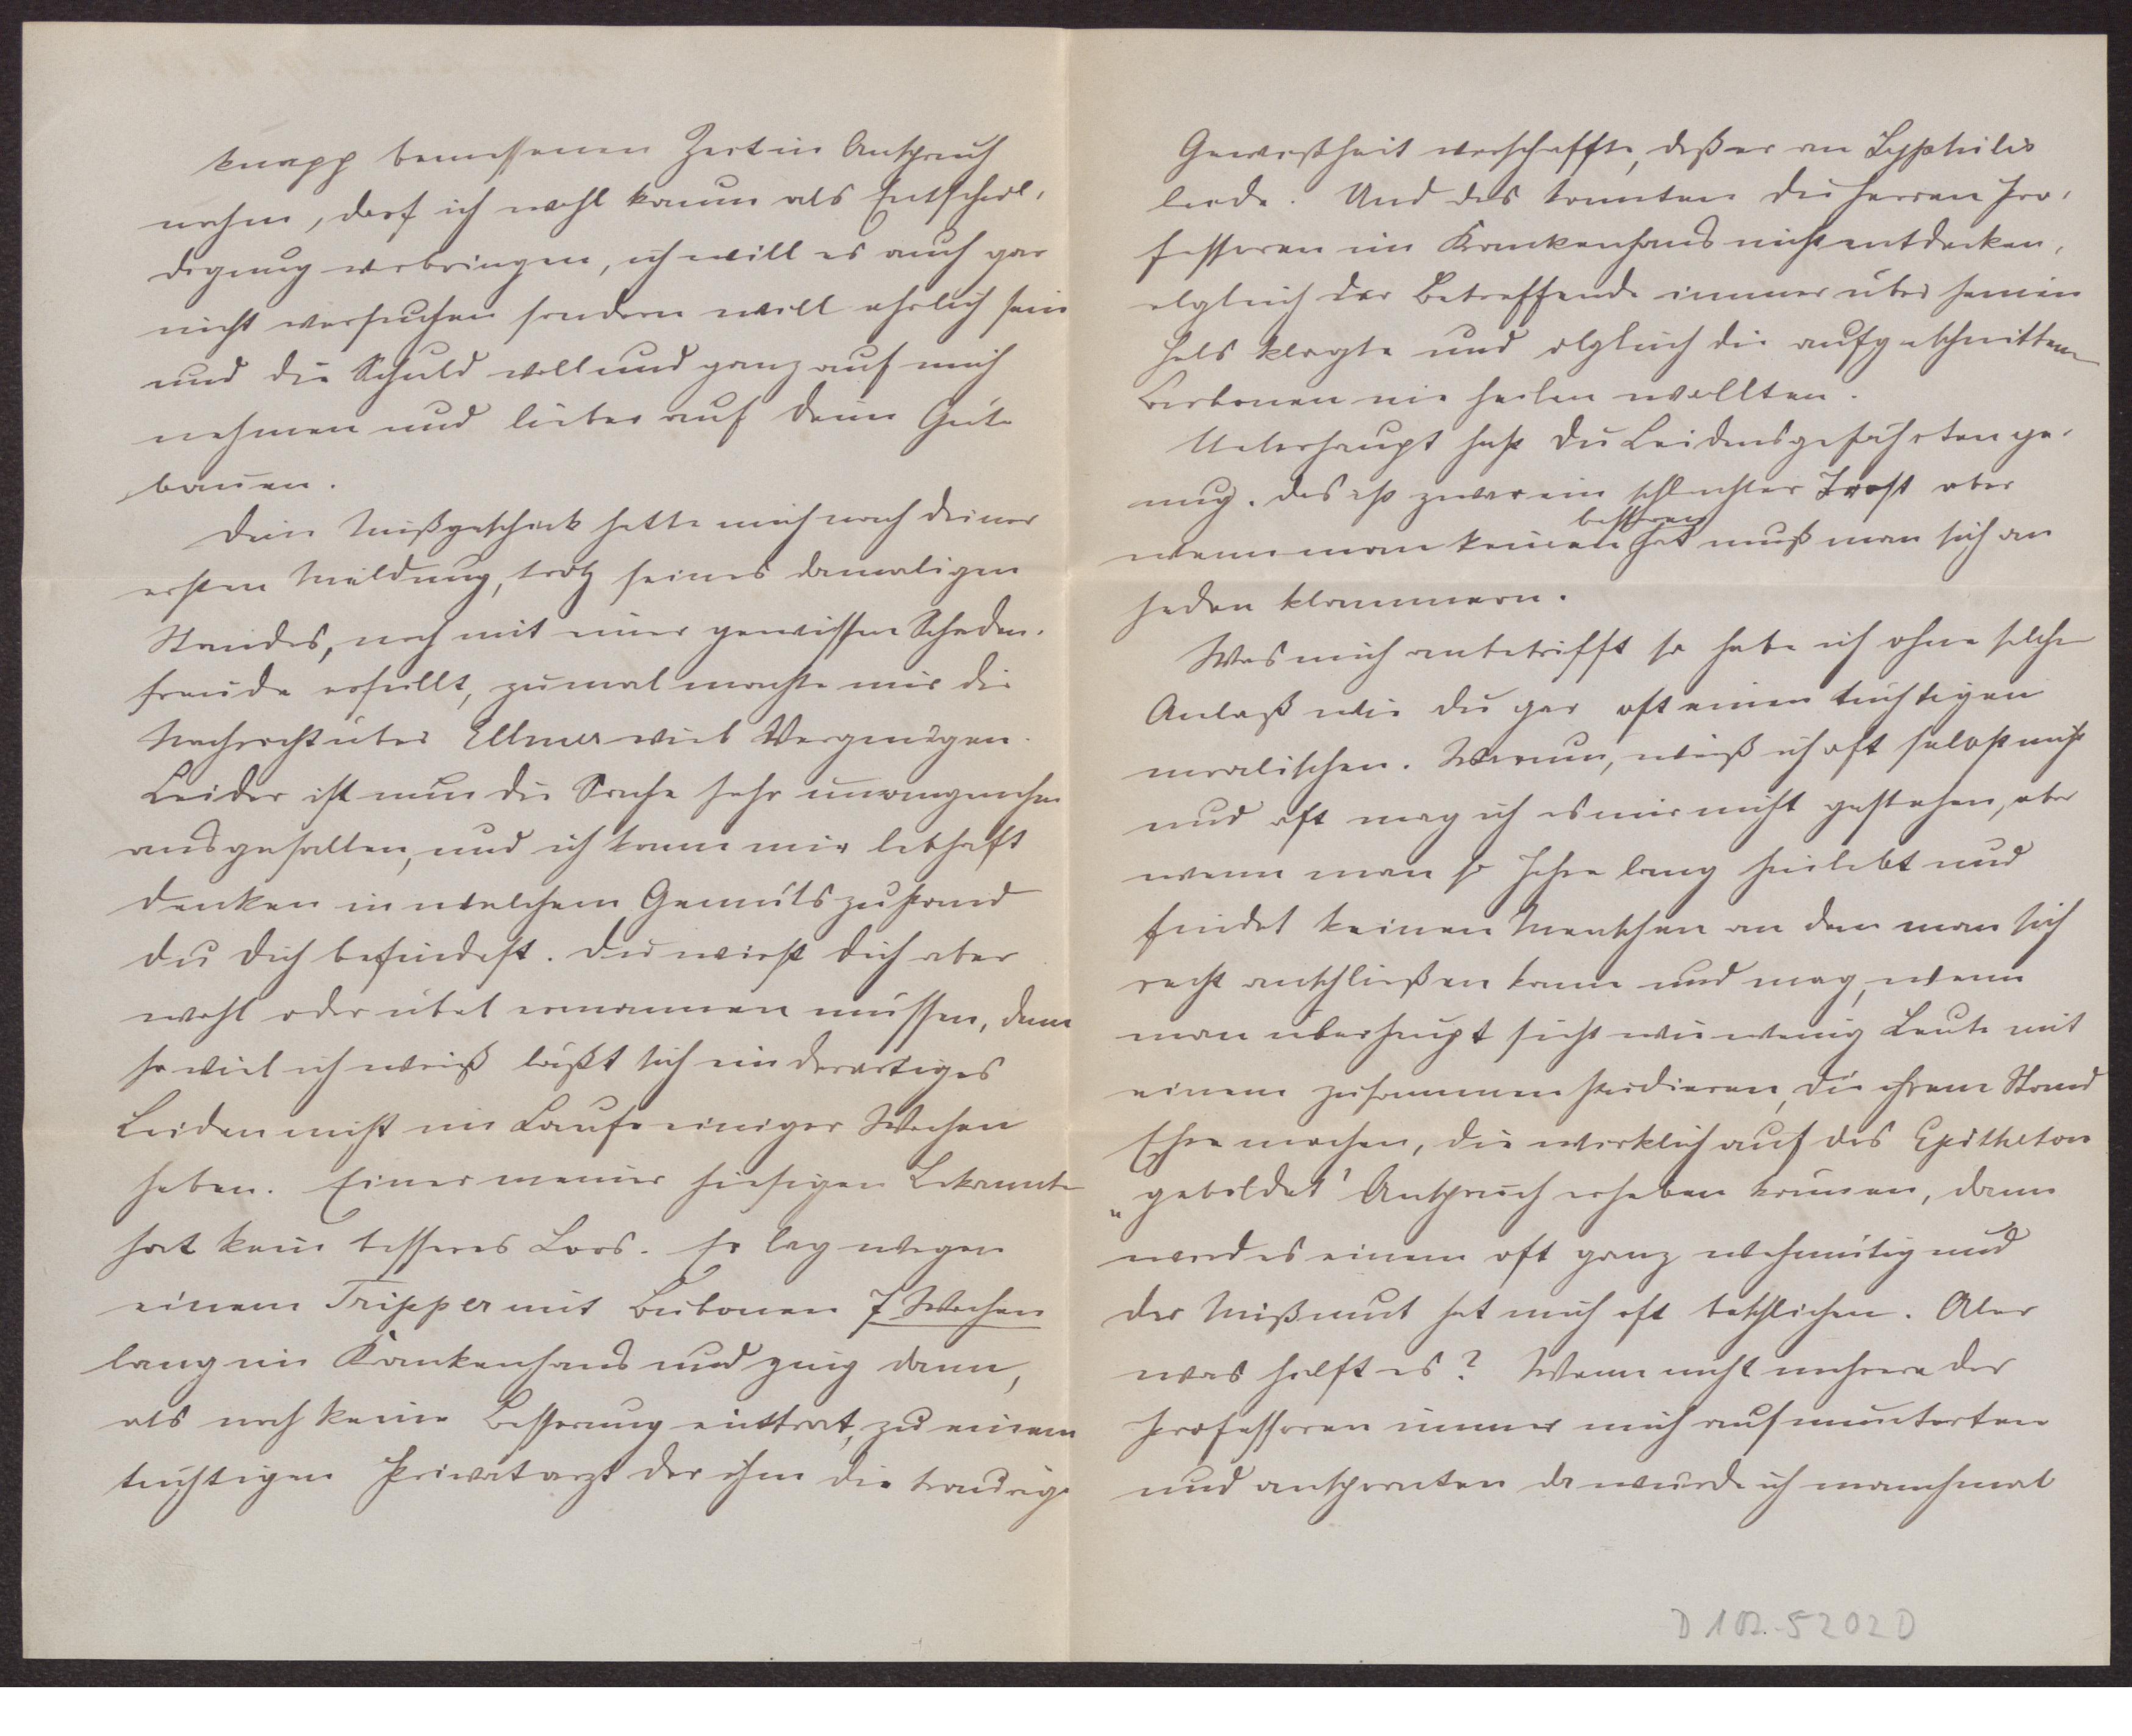 knapp bemessenen Zeit in Anspruch
nahm, darf ich wohl kaum als Entschul-
digung vorbringen, ich will es auch gar
nicht versuchen sondern will ehrlich sein
und die Schuld voll und ganz auf mich
nehmen und lieber auf deine Güte
bauen.
Dein Mißgeschick hatte mich nach deiner
ersten Meldung, trotz seines damaligen
Standes, noch mit einer gewissen Schaden-
freude erfüllt, zumal machte mir die
Nachricht über Ellmer viel Vergnügen.
Leider ist nun die Sache sehr unangenehm
ausgefallen, und ich kann mir lebhaft
denken in welchem Gemütszustand
du dich befindest. Du wirst dich aber
wohl oder übel ermannen müssen, denn
so viel ich weiß läßt sich ein derartiges
Leiden nicht im Laufe einiger Wochen
heben. Einer meiner hiesigen Bekannte
hat kein besseres Loos. Er lag wegen
einem Tripper mit Bubonen 7 Wochen
lang im Krankenhaus und ging dann,
als noch keine Besserung eintrat, zu einem
tüchtigen Privatarzt der ihm die traurige
Gewißheit verschaffte, daß er an Syphilis
leide. Und das konnten die Herren Pro-
fessoren im Krankenhaus nicht entdecken,
obgleich der Betreffende immer über seinen
Hals klagte und obgleich die aufgeschnittenen
Bubonen nie heilen wollten.
Ueberhaupt hast Du Leidensgefährten ge-
nug. Das ist zwar ein schlechter Trost aber
besseren
wenn man keinen hat muß man sich an
jeden klammern.
Was mich anbetrifft so habe ich ohne solchen
Anlaß wie du gar oft einen tüchtigen
moralischen. Warum, weiß ich oft selbst nicht
und oft mag ich es mir nicht gestehen, aber
wenn man so Jahre lang hinlebt und
findet keinen Menschen an den man sich
recht anschließen kann und mag, wenn
man überhaupt sieht wie wenig Leute mit
einem zusammen studieren, die ihrem Stand
Ehre machen, die wirklich auf das Epitheton
„gebildet" Anspruch erheben können, dann
wird es einem oft ganz wehmütig und
der Mißmut hat mich oft beschlichen. Aber
was hilft es? Wenn nicht mehrere der
Professoren immer mich aufmunterten
und anspornten da würde ich manchmal
D 102.5202D